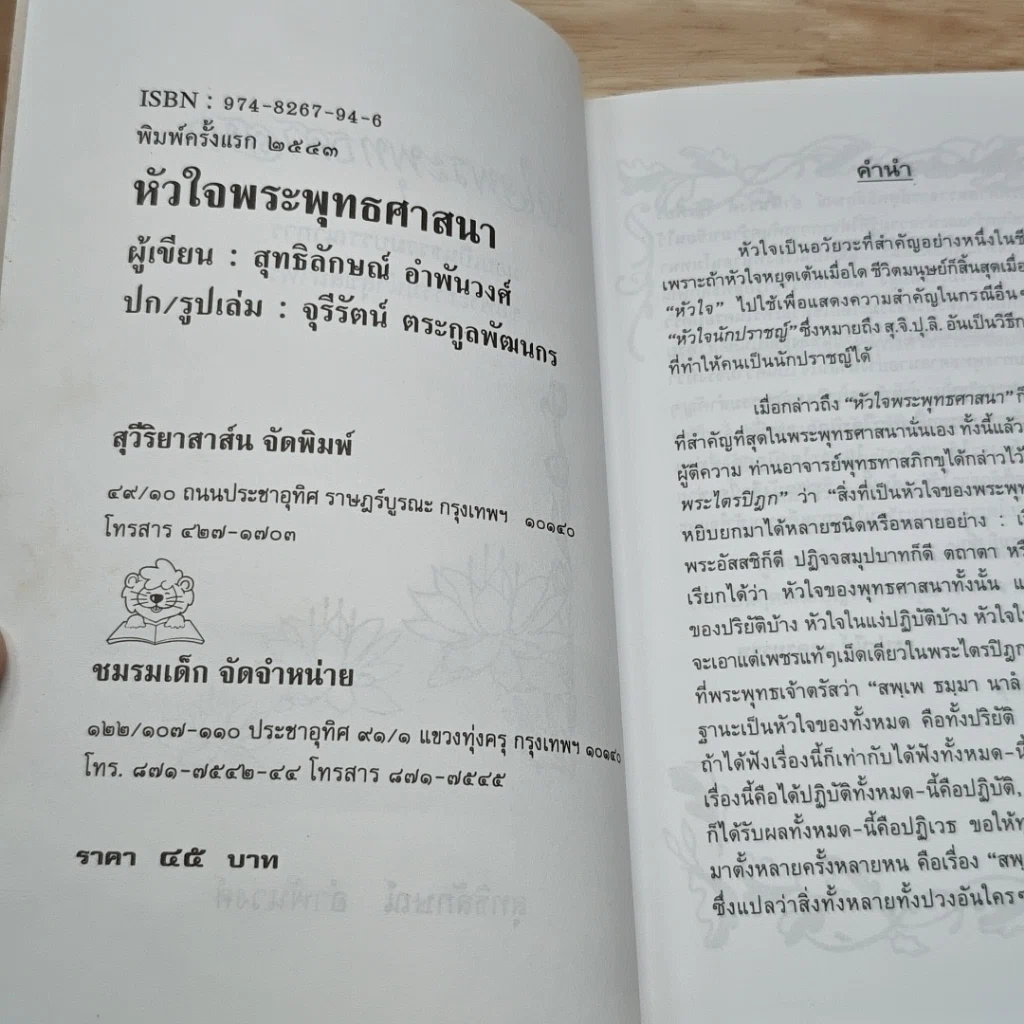 ISBN : 974-8267-94-6
พิมพ์ครั้งแรก ๒๕๔๓
หัวใจพระพุทธศาสนา
ผู้เขียน : สุทธิลักษณ์ อำพันวงศ์
ปก/รูปเล่ม : จุรีรัตน์ ตระกูลพัฒนกร
สุวีริยาสาส์น จัดพิมพ์
๔๙/๑๐ ถนนประชาอุทิศ ราษฎร์บูรณะ กรุงเทพฯ ๑๐๑๔๐
โทรสาร ๔๒๗-๑๗๐๓
ชมรมเด็ก จัดจำหน่าย
๑๒๒/๑๐๗-๑๑๐ ประชาอุทิศ ๙๑/๑ แขวงทุ่งครุ กรุงเทพฯ ๑๐๑๔๐
โทร. ๘๗๑-๗๕๔๒-๔๔ โทรสาร ๘๗๑-๗๕๔๕
ราคา ๔๕ บาท
คำนำ
หัวใจเป็นอวัยวะที่สำคัญอย่างหนึ่งใน
เพราะถ้าหัวใจหยุดเต้นเมื่อใด ชีวิตมนุษย์ก็สิ้นสุดเมื่อ
“หัวใจ” ไปใช้เพื่อแสดงความสำคัญในกรณีอื่นๆ
“หัวใจนักปราชญ์” ซึ่งหมายถึง สุ.จิ.ปุ.ลิ. อันเป็นวิธี
ที่ทำให้คนเป็นนักปราชญ์ได้
เมื่อกล่าวถึง “หัวใจพระพุทธศาสนา” ก็
ที่สำคัญที่สุดในพระพุทธศาสนานั่นเอง ทั้งนี้แล้ว
ผู้ตีความ ท่านอาจารย์พุทธทาสภิกขุได้กล่าวไว้
พระไตรปิฎก” ว่า “สิ่งที่เป็นหัวใจของพระพุท
หยิบยกมาได้หลายชนิดหรือหลายอย่าง :
พระอัสสชิก็ดี ปฏิจจสมุปบาทก็ดี ตถาตา
เรียกได้ว่า หัวใจของพุทธศาสนาทั้งนั้น
ของปริยัติบ้าง หัวใจในแง่ปฏิบัติบ้าง หัวใจ
จะเอาแต่เพชรแท้ๆเม็ดเดียวในพระไตรปิฎก
ที่พระพุทธเจ้าตรัสว่า “สพฺเพ ธมฺมา นาลํ
ฐานะเป็นหัวใจของทั้งหมด คือทั้งปริยัติ
ถ้าได้ฟังเรื่องนี้ก็เท่ากับได้ฟังทั้งหมด-นี้
เรื่องนี้คือได้ปฏิบัติทั้งหมด-นี้คือปฏิบัติ,
ก็ได้รับผลทั้งหมด-นี้คือปฏิเวธ ขอให้
มาตั้งหลายครั้งหลายหน คือเรื่อง “สพฺ
ซึ่งแปลว่าสิ่งทั้งหลายทั้งปวงอันใครๆ